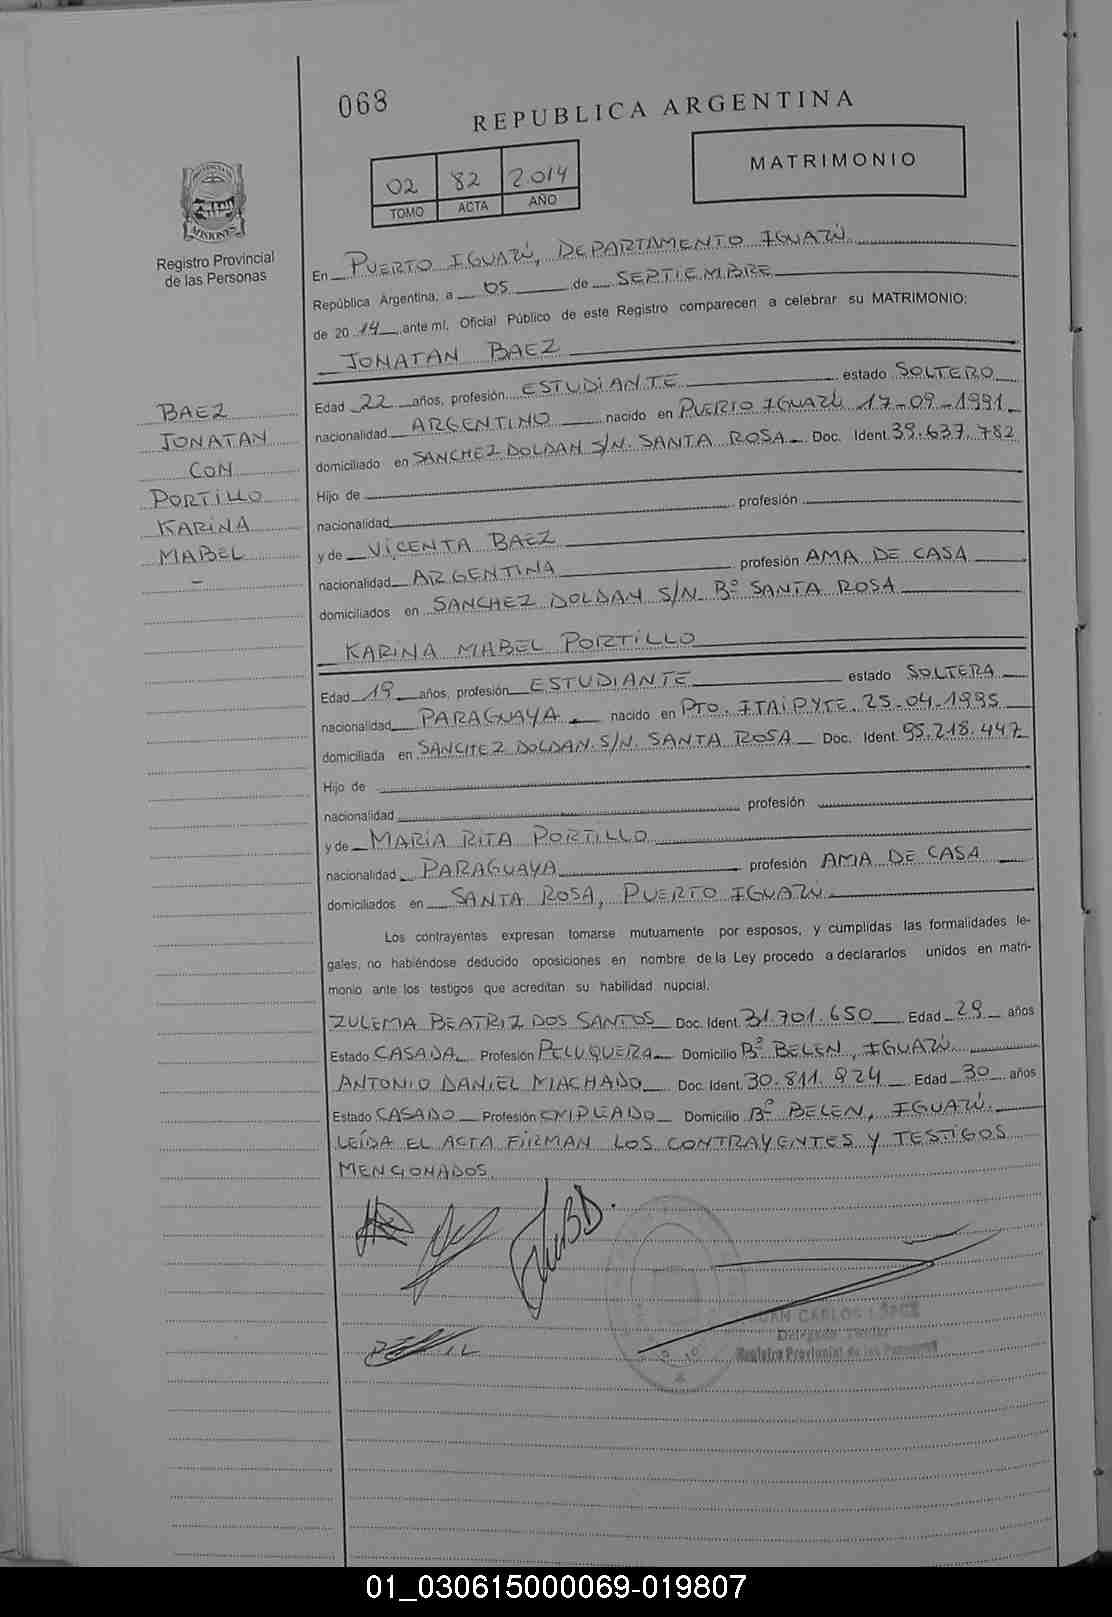 068
REPUBLICA ARGENTINA
MATRIMONIO
02 82 2.014
TOMO ACTA AÑO
MISIONES
Registro Provincial
de las Personas
En PUERTO IGUAZÚ, DEPARTAMENTO IGUAZÚ
República Argentina, a 05 de SEPTIEMBRE
de 20 14 ante mí, Oficial Público de este Registro comparecen a celebrar su MATRIMONIO:
JONATAN BAEZ
Edad 22 años, profesión ESTUDIANTE estado SOLTERO
nacionalidad ARGENTINO nacido en PUERTO IGUAZÚ 17-09-1991
domiciliado en SANCHEZ DOLDAN S/N. SANTA ROSA Doc. Ident. 39.637.782
Hijo de
nacionalidad profesión
y de VICENTA BAEZ
nacionalidad ARGENTINA profesión AMA DE CASA
domiciliados en SANCHEZ DOLDAN S/N Bº SANTA ROSA
BAEZ
JONATAN
CON
PORTILLO
KARINA
MABEL
KARINA MABEL PORTILLO
Edad 19 años, profesión ESTUDIANTE estado SOLTERA
nacionalidad PARAGUAYA nacido en PTO. ITAIPYTE 25-04-1995
domiciliada en SANCHEZ DOLDAN. S/N. SANTA ROSA Doc. Ident. 95.218.447
Hijo de
nacionalidad profesión
y de MARÍA RITA PORTILLO
nacionalidad PARAGUAYA profesión AMA DE CASA
domiciliados en SANTA ROSA, PUERTO IGUAZÚ
Los contrayentes expresan tomarse mutuamente por esposos, y cumplidas las formalidades le-
gales, no habiéndose deducido oposiciones en nombre de la Ley procedo a declararlos unidos en matri-
monio ante los testigos que acreditan su habilidad nupcial.
ZULEMA BEATRIZ DOS SANTOS Doc. Ident. 31.701.650 Edad 29 años
Estado CASADA Profesión PELUQUERA Domicilio Bº BELEN, IGUAZÚ
ANTONIO DANIEL MACHADO Doc. Ident. 30.811.924 Edad 30 años
Estado CASADO Profesión EMPLEADO Domicilio Bº BELEN, IGUAZÚ.
LEÍDA EL ACTA FIRMAN LOS CONTRAYENTES Y TESTIGOS
MENCIONADOS.
JUAN CARLOS LÓPEZ
Delegado Titular
Registro Provincial de las Personas
01_030615000069-019807